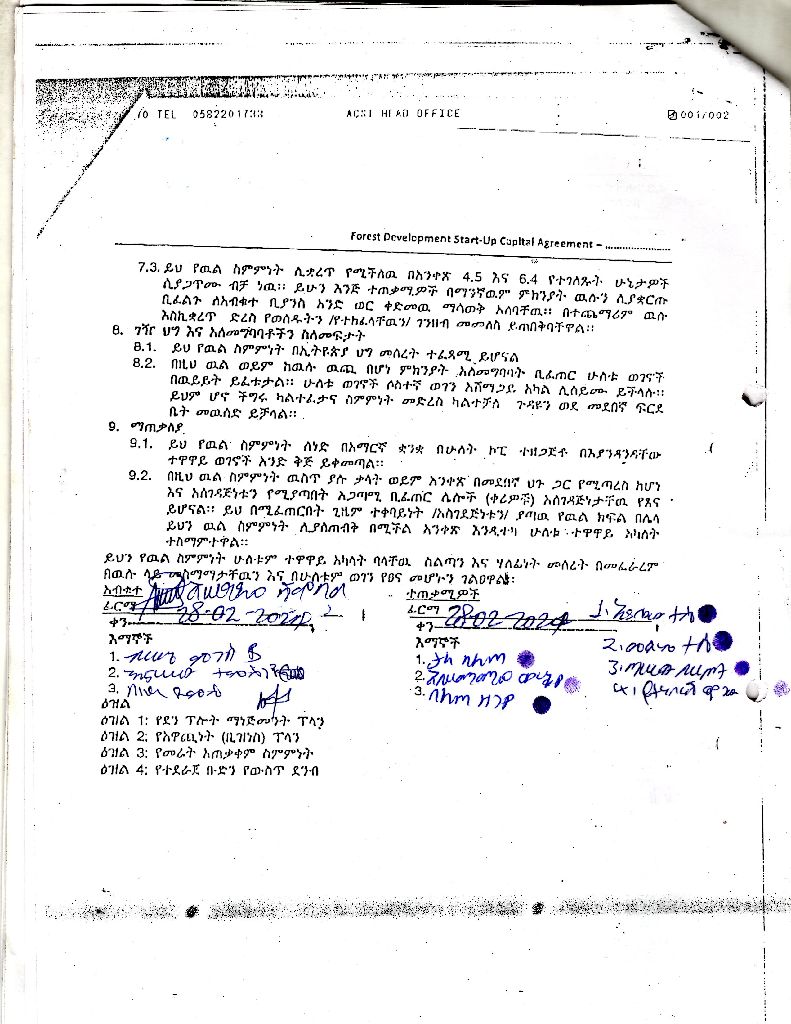 /0 TEL 0582201733 ACSI HEAD OFFICE 001/002
Forest Development Start-Up Capital Agreement – ......................
7.3. ይህ የዉል ስምምነት ሊቋረጥ የሚችለዉ በአንቀጽ 4.5 እና 6.4 የተገለጹት ሁኔታዎች
ሲያጋጥሙ ብቻ ነዉ። ይሁን እንጅ ተጠቃሚዎች በማንኛዉም ምክንያት ዉሉን ሊያቋርጡ
ቢፈልጉ ለአብቁተ ቢያንስ አንድ ወር ቀድመዉ ማሳወቅ አለባቸዉ። በተጨማሪም ዉሉ
እስኪቋረጥ ድረስ የወሰዱትን /የተከፈላቸዉን/ ገንዘብ መመለስ ይጠበቅባቸዋል።
8. ገዥ ህግ እና አለመግባባቶችን ስለመፍታት
8.1. ይህ የዉል ስምምነት በኢትዮጵያ ህግ መሰረት ተፈጻሚ ይሆናል
8.2. በዚህ ዉል ወይም ከዉሉ ዉጪ በሆነ ምክንያት አለመግባባት ቢፈጠር ሁለቱ ወገኖች
በዉይይት ይፈቱታል። ሁለቱ ወገኖች ሶስተኛ ወገን አሸማጋይ አካል ሊሰይሙ ይችላሉ።
ይህም ሆኖ ችግሩ ካልተፈታና ስምምነት መድረስ ካልተቻለ ጉዳዩን ወደ መደበኛ ፍርድ
ቤት መዉሰድ ይቻላል።
9. ማጠቃለያ
9.1. ይህ የዉል ስምምነት ሰነድ በአማርኛ ቋንቋ በሁለት ኮፒ ተዘጋጅቶ በእያንዳንዳቸው
ተዋዋይ ወገኖች አንድ ቅጅ ይቀመጣል።
9.2. በዚህ ዉል ስምምነት ዉስጥ ያሉ ቃላት ወይም አንቀጽ በመደበኛ ህጉ ጋር የሚጣረስ ከሆነ
እና አስገዳጅነቱን የሚያጣበት አጋጣሚ ቢፈጠር ሌሎች (ቀሪዎች) አስገዳጅነታቸዉ የጸና
ይሆናል። ይህ በሚፈጠርበት ጊዜም ተቀባይነት /አስገዳጅነቱን/ ያጣዉ የዉል ክፍል በሌላ
ይህን ዉል ስምምነት ሊያስጠብቅ በሚችል አንቀጽ እንዲተካ ሁለቱ ተዋዋይ አካላት
ተስማምተዋል።
ይህን የዉል ስምምነት ሁለቱም ተዋዋይ አካላት ባላቸዉ ስልጣን እና ሃላፊነት መሰረት በመፈራረም
በዉሉ ላይ መስማማታቸዉን እና በሁለቱም ወገን የፀና መሆኑን ገልፀዋል፡
አብቁተ
ፊርማ
ቀን 28-02-2024
እማኞች
1.
2.
3.
ተጠቃሚዎች
ፊርማ
ቀን 28-02-2024
እማኞች
1.
2.
3.
1.
2.
3.
4.
ዕዝል
ዕዝል 1: የደን ፕሎት ማነጅመንት ፕላን
ዕዝል 2: የአዋጪነት (ቢዝነስ) ፕላን
ዕዝል 3: የመሬት አጠቃቀም ስምምነት
ዕዝል 4: የተደራጀ ቡድን የውስጥ ደንብ